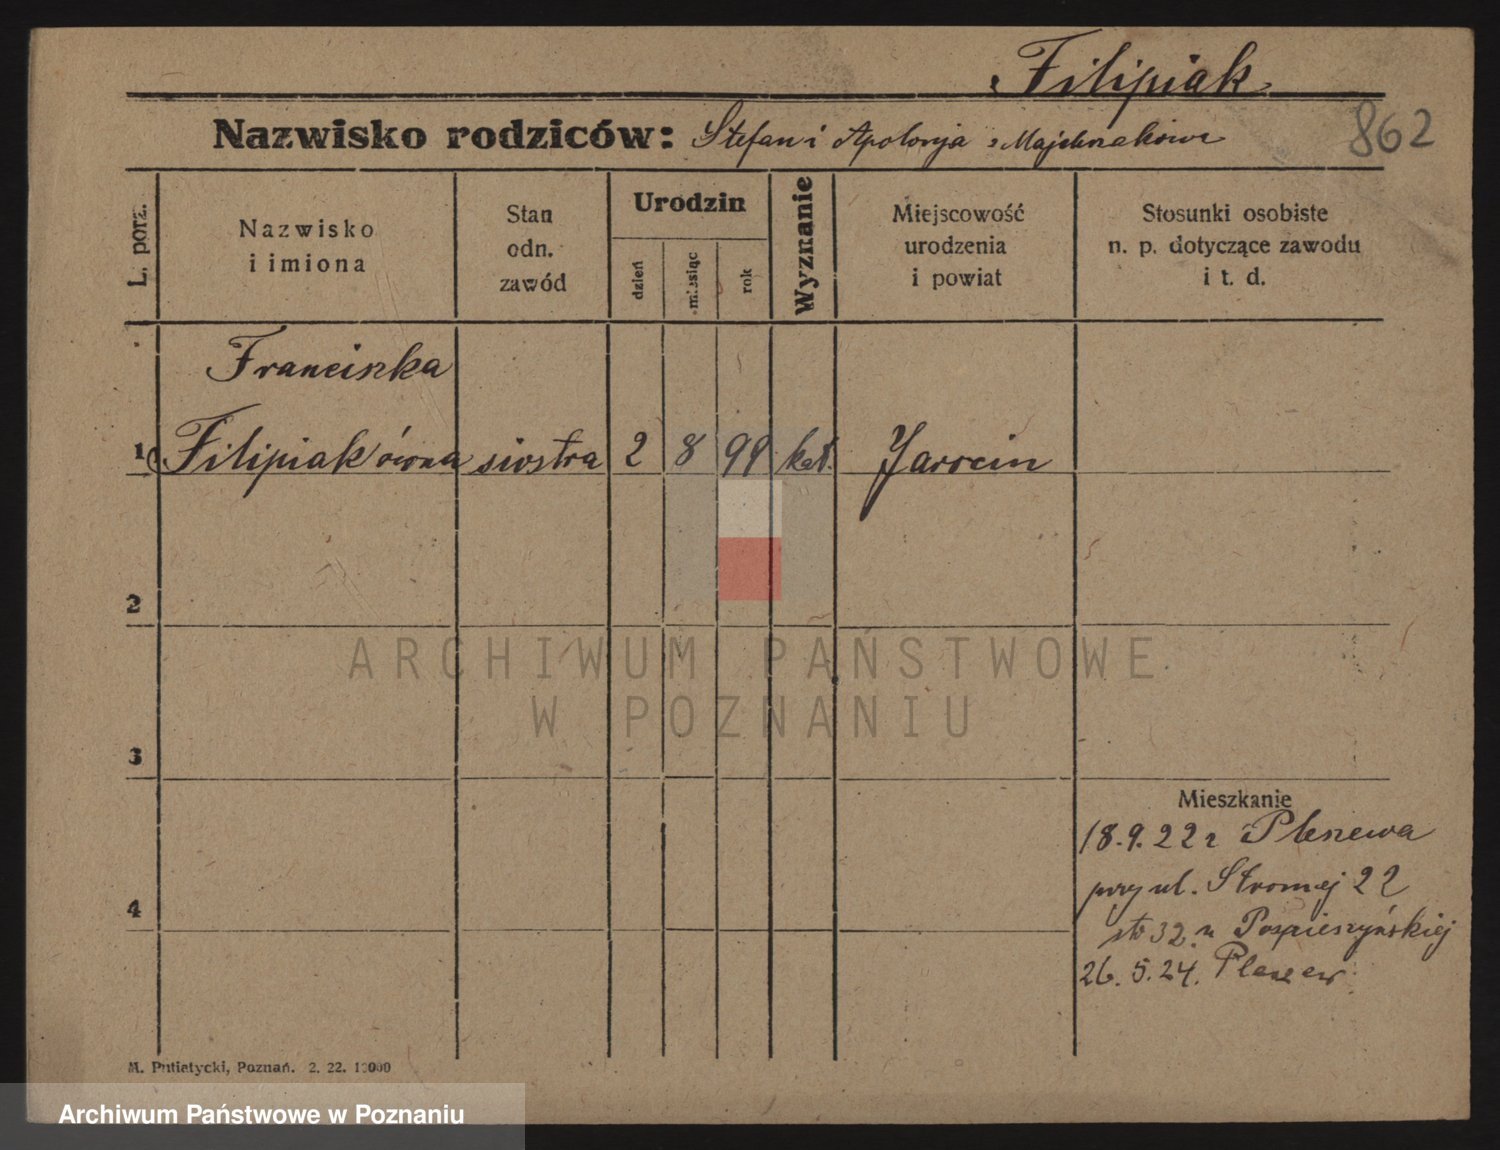 Filipiak
Nazwisko rodziców: Stefan i Apolonja z Majchrzaków
862
L. porz.
Nazwisko
i imiona
Stan
odn.
zawód
Urodzin
dzień
miesiąc
rok
Wyznanie
Miejscowość
urodzenia
i powiat
Stosunki osobiste
n. p. dotyczące zawodu
i t. d.
Franciszka
1 Filipiakówna siostra 2 8 99 kat. Jarocin
2
ARCHIWUM PAŃSTWOWE
W POZNANIU
3
Mieszkanie
18.9.22 z Pleszewa
przy ul. Stromej 22
4
32. u Pospieszyńskiej
26.5.24. Pleszew
M. Putiatycki, Poznań. 2. 22. 10000
Archiwum Państwowe w Poznaniu